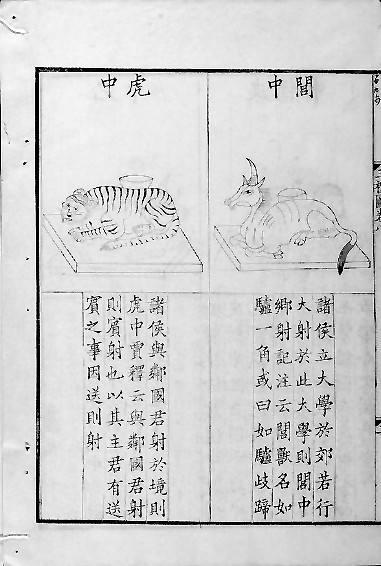 閭中
諸侯立大學於郊若行
大射於此大學則閭中
鄉射記注云閭獸名如
驢一角或曰如驢歧蹄
虎中
諸侯與鄰國君射於境則
虎中賈釋云與鄰國君射
則賓射也以其主君有送
賓之事因送則射